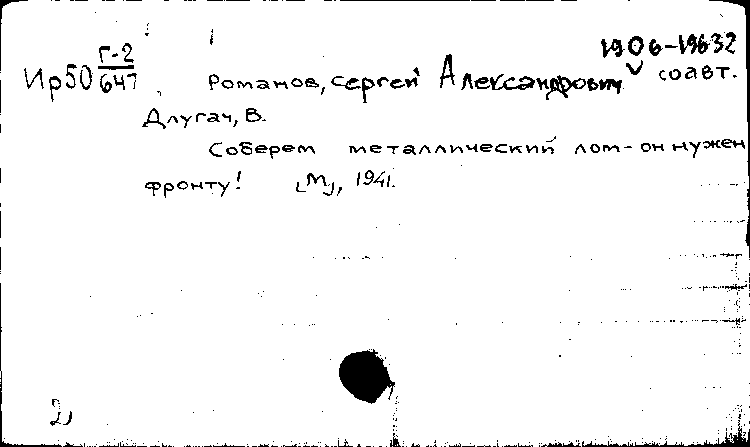 1906-1963
Ир50 Г-2/647 Романов, Сергей Александрович соавт.
Длугач, В.
Соберем металлический лом - он нужен
фронту! [М], 1941.
2)